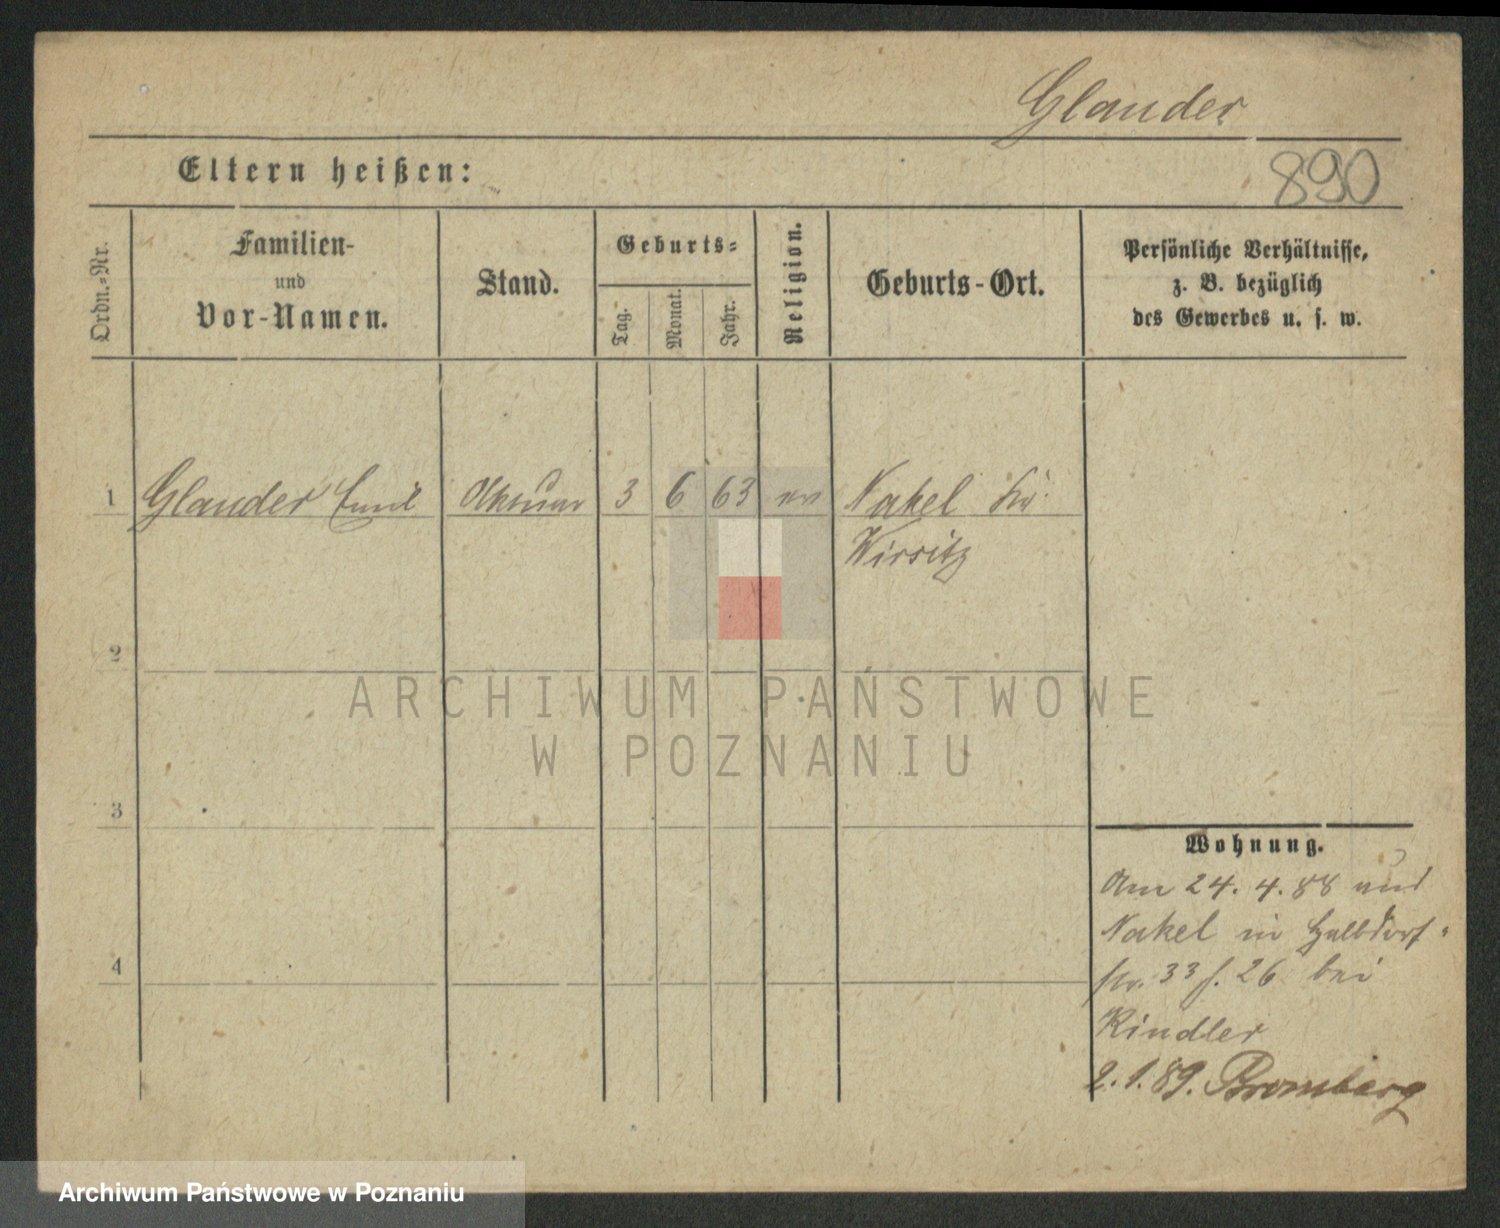 Glander
890
Eltern heißen:
Ordn.-Nr.
Familien-
und
Vor-Namen.
Stand.
Geburts-
Tag.
Monat.
Jahr.
Religion.
Geburts-Ort.
Persönliche Verhältnisse,
z. B. bezüglich
des Gewerbes u. s. w.
1 Glander Emil Aktuar 3 6 63 ev Nakel Kr.
Wirsitz
2
3
4
Wohnung.
Am 24. 4. 88 aus
Nakel in Halbdorf-
str. 33 b. 26 bei
Rindler
2.1.89. Bromberg
ARCHIWUM PAŃSTWOWE
W POZNANIU
Archiwum Państwowe w Poznaniu